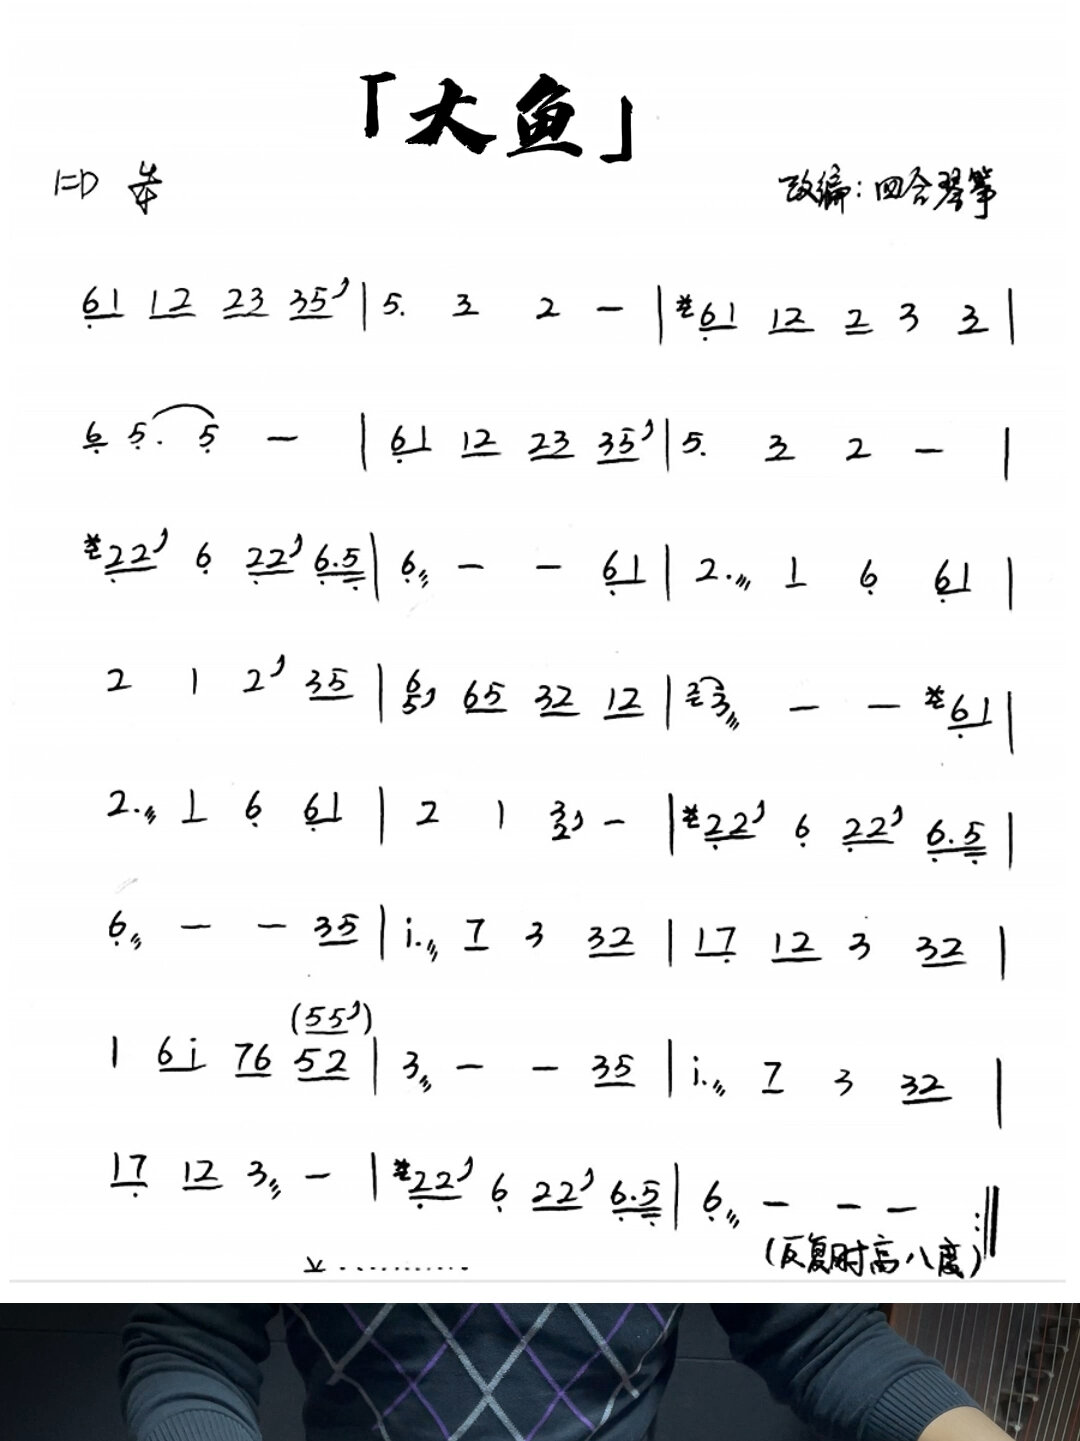 「大鱼」
1=D 4/4
改编：四合琴筝
61 12 23 35 | 5. 3 2 — | 61 12 2 3 3 |
6 5. 5 — | 61 12 23 35 | 5. 3 2 — |
22 6 22 6.5 | 6 — — 61 | 2. 1 6 61 |
2 1 2 35 | 6 5 65 32 12 | 2 3 — — 61 |
2. 1 6 61 | 2 1 3 2 — | 22 6 22 6.5 |
6 — — 35 | i. 7 3 32 | 17 12 3 32 |
(55)
1 6i 76 52 | 3 — — 35 | i. 7 3 32 |
17 12 3 — | 22 6 22 6.5 | 6 — — — :||
(反复时高八度)